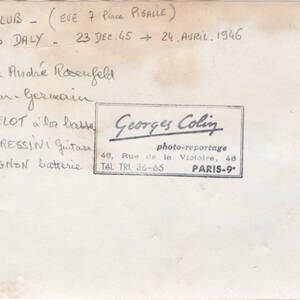 LUB - (EVE 7 Place PIGALLE)
DALY - 23 DEC. 45 → 24. AVRIL. 1946
André Rosenfeld
Germain
LOT à la basse
RESSINI Guitare
GNON batterie
Georges Colin
photo-reportage
46, Rue de la Victoire, 46
Tél. TRI. 36-65 PARIS-9e